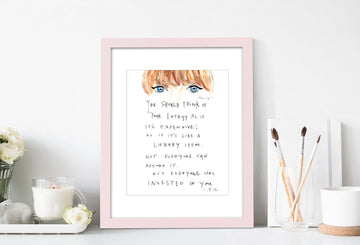 YOU SHOULD THINK OF
YOUR ENERGY AS IF
IT'S EXPENSIVE,
AS IF IT'S LIKE A
LUXURY ITEM.
NOT EVERYONE CAN
AFFORD IT.
NOT EVERYONE HAS
INVESTED IN YOU
- T.S.